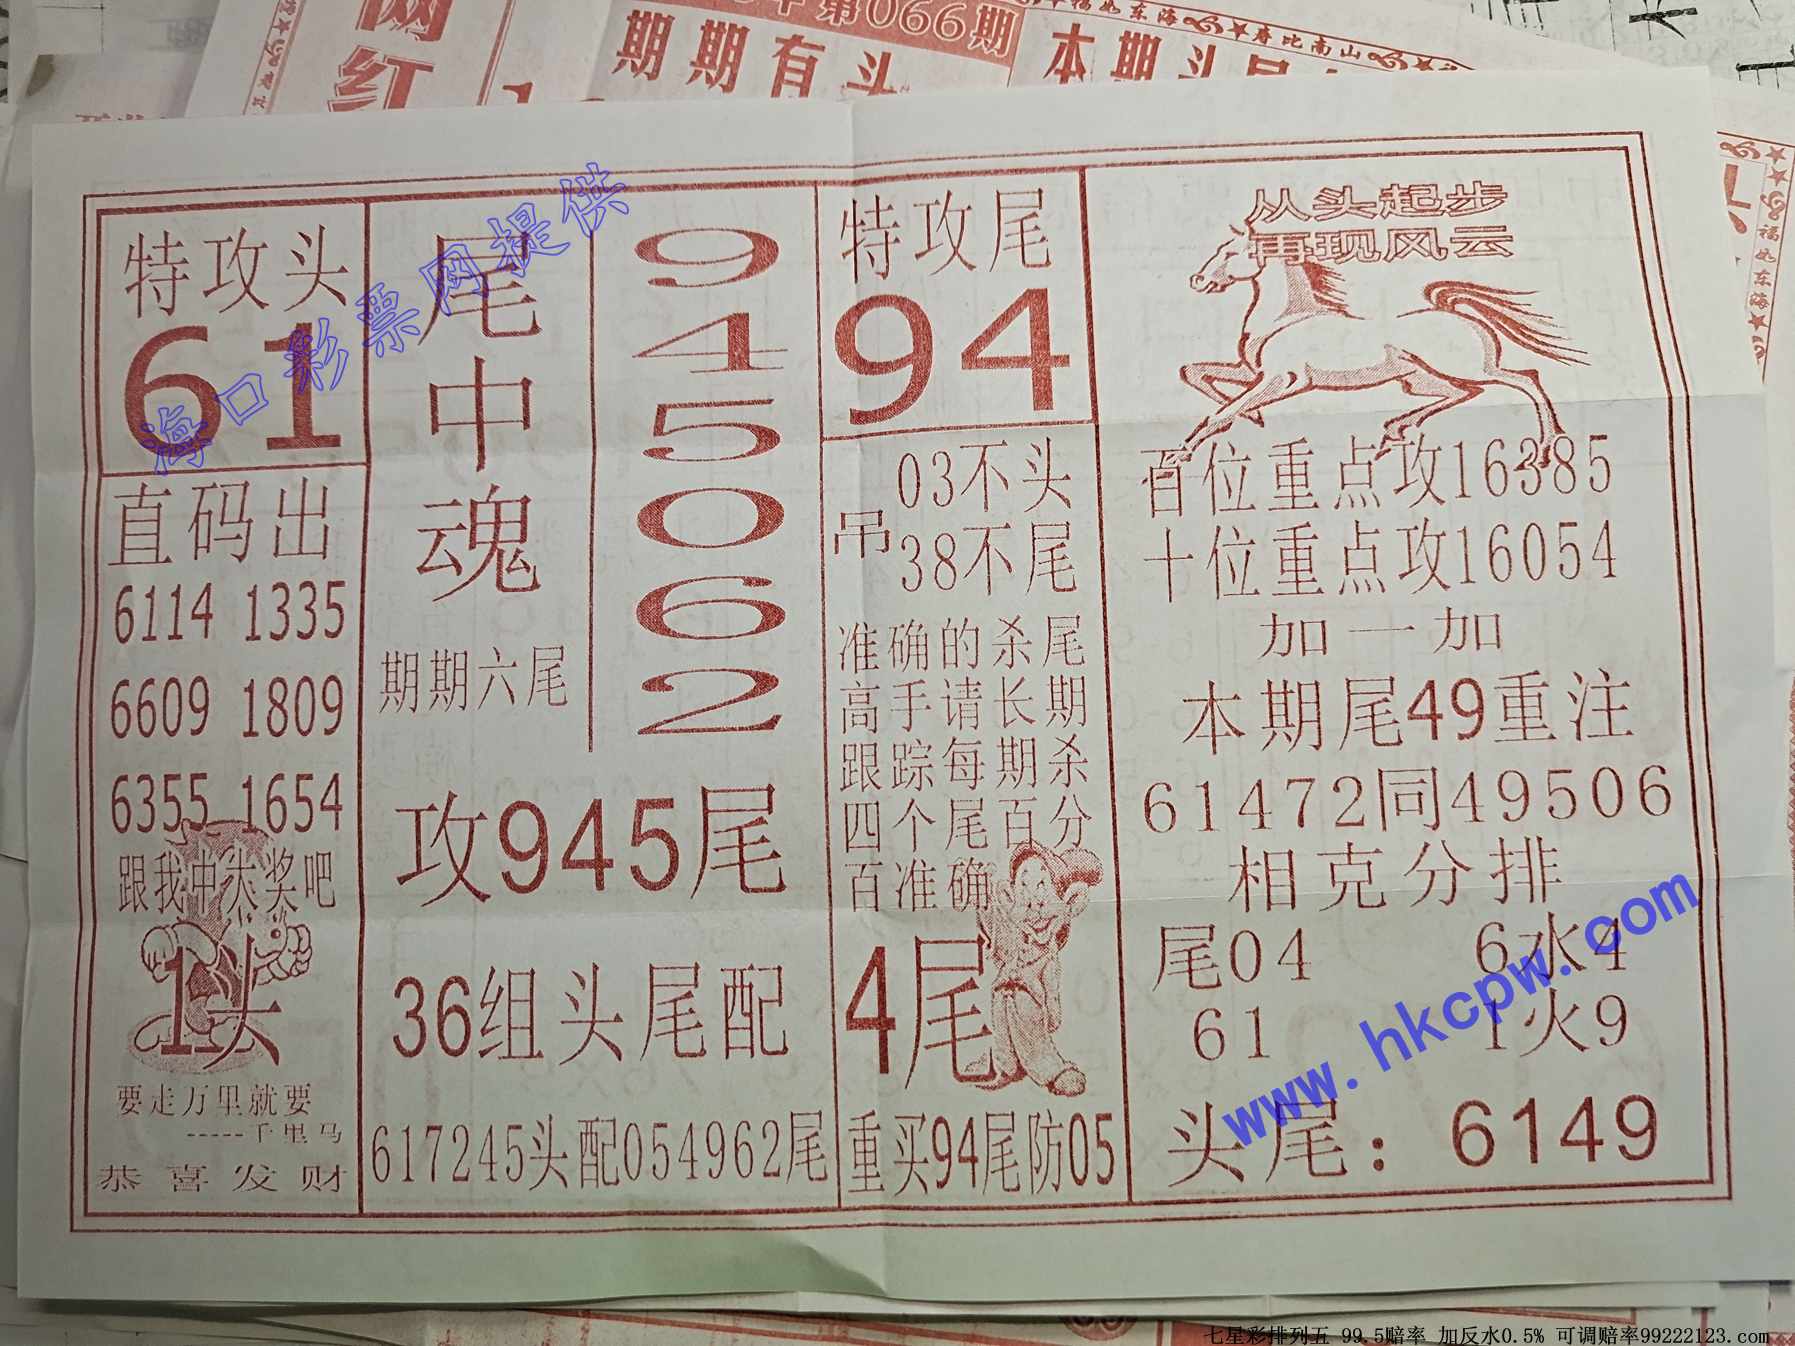 网红
年第066期
期期有头
本期头尾
福如东海
寿比南山
福如东海
特攻头
61
直码出
6114 1335
6609 1809
6355 1654
跟我中大奖吧
1头
要走万里就要
-----千里马
恭喜发财
尾中魂
期期六尾
9
4
5
0
6
2
攻945尾
36组头尾配
617245头配054962尾
特攻尾
94
吊
03不头
38不尾
准确的杀尾
高手请长期
跟踪每期杀
四个尾百分
百准确
4尾
重买94尾防05
从头起步
再现风云
百位重点攻16385
十位重点攻16054
加一加
本期尾49重注
61472同49506
相克分排
尾04 6水4
61 1火9
头尾：6149
海口彩票网提供
www.hkcpw.com
七星彩排列五 99.5赔率 加反水0.5% 可调赔率99222123.com